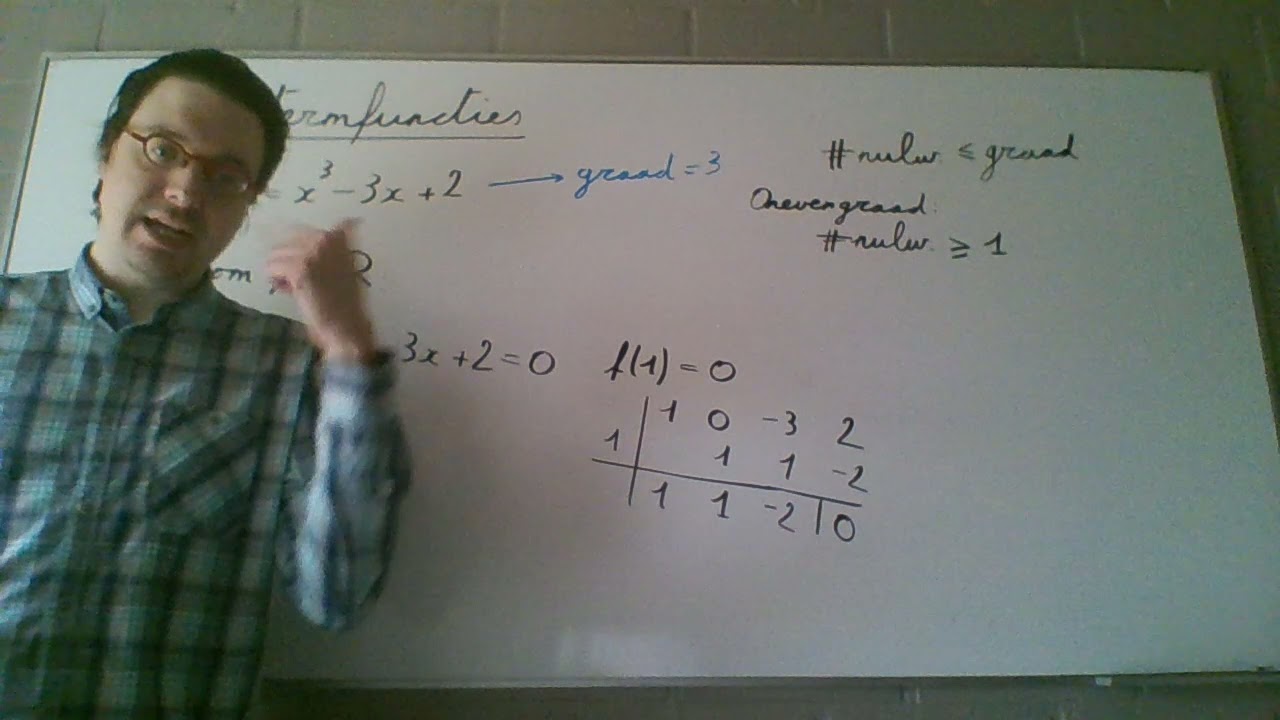 termfuncties
= x³ - 3x + 2 → graad = 3
# nulw. ≤ graad
Oneven graad.
# nulw. ≥ 1
om R
3x + 2 = 0
f(1) = 0
1 0 -3 2
1 1 1 -2
1 1 -2 | 0